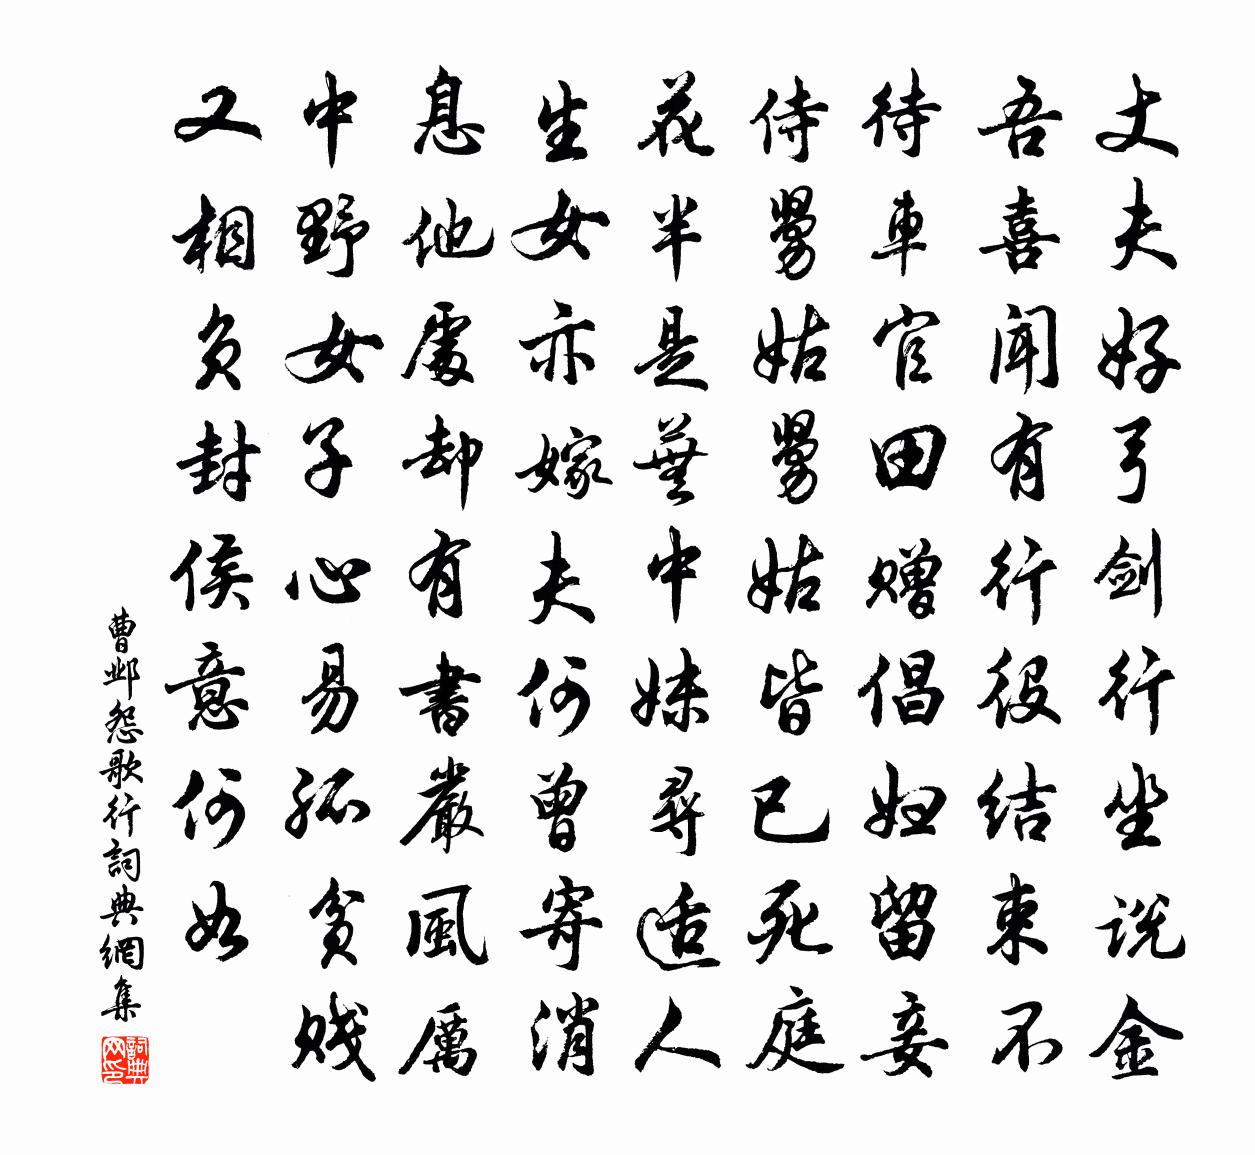 丈夫好弓剑行坐说金
吾喜闻有行役结束不
待車官田赠倡妇留妾
侍舅姑舅姑皆已死庭
花半是蕪中妹尋适人
生女亦嫁夫何曾寄消
息他處却有書嚴風厲
中野女子心易孤贫贱
又相负封侯意何如
曹邺怨歌行詞典網集
詞典网印